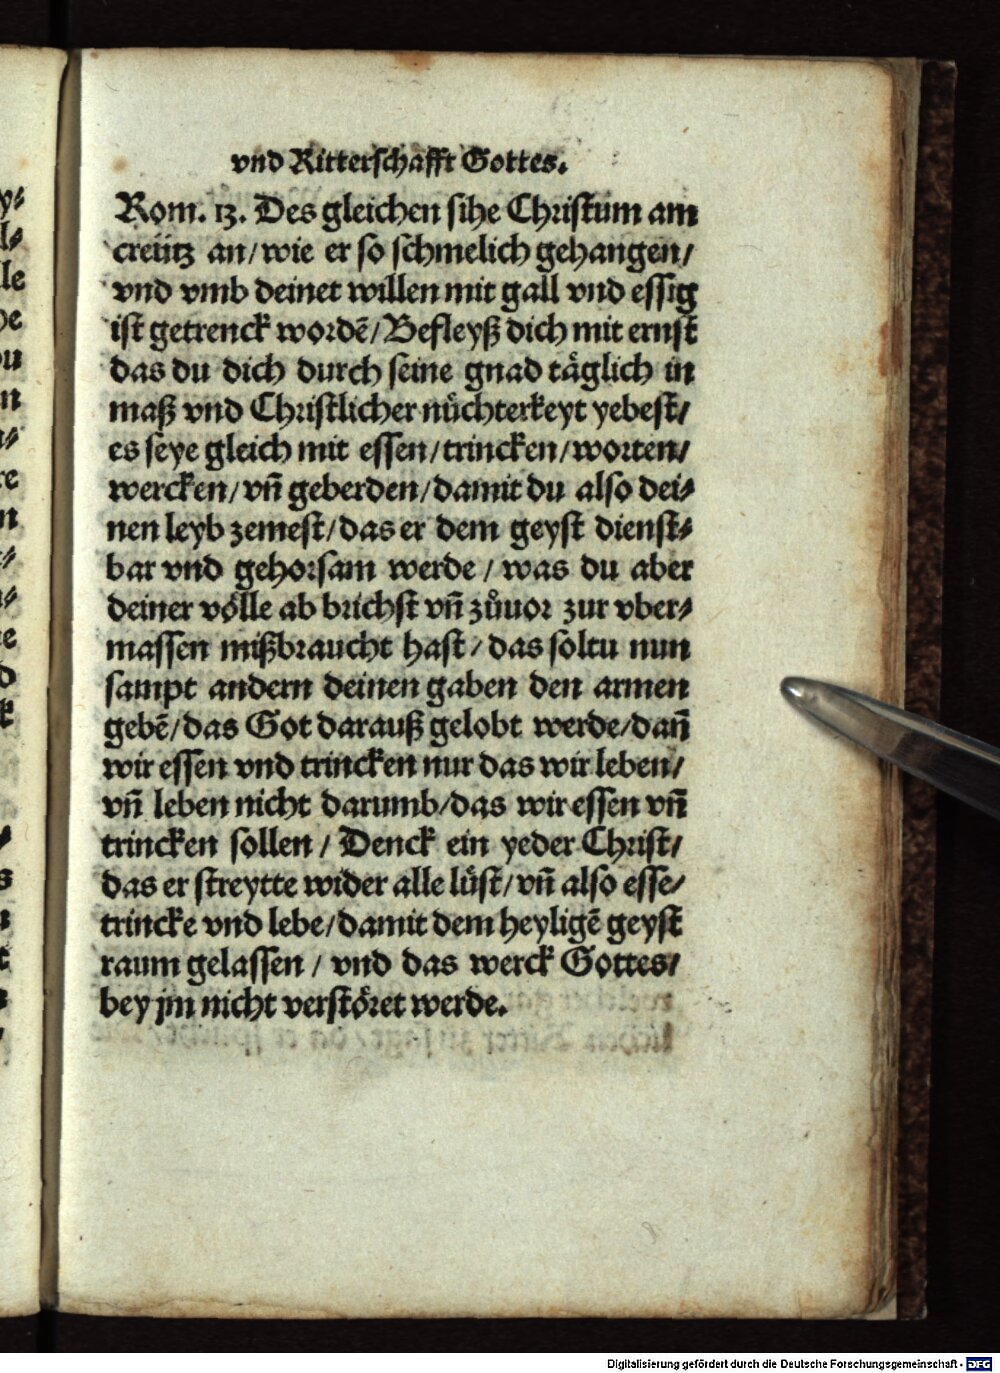 vnd Ritterschafft Gottes.
Rom. 13. Des gleichen sihe Christum am
creütz an/wie er so schmelich gehangen/
vnd vmb deinet willen mit gall vnd essig
ist getrenck wordē/Befleyß dich mit ernst
das du dich durch seine gnad täglich in
maß vnd Christlicher nüchterkeyt yebest/
es seye gleich mit essen/trincken/worten/
wercken/vñ geberden/damit du also dei⸗
nen leyb zemest/das er dem geyst dienst⸗
bar vnd gehorsam werde/was du aber
deiner völle ab brichst vñ zůuor zur vber⸗
massen mißbraucht hast/das soltu nun
sampt andern deinen gaben den armen
gebē/das Got darauß gelobt werde/dañ
wir essen vnd trincken nur das wir leben/
vñ leben nicht darumb/das wir essen vñ
trincken sollen/Denck ein yeder Christ/
das er streytte wider alle lüst/vñ also esse/
trincke vnd lebe/damit dem heyligē geyst
raum gelassen/vnd das werck Gottes/
bey jm nicht verstöret werde.
Digitalisierung gefördert durch die Deutsche Forschungsgemeinschaft - DFG